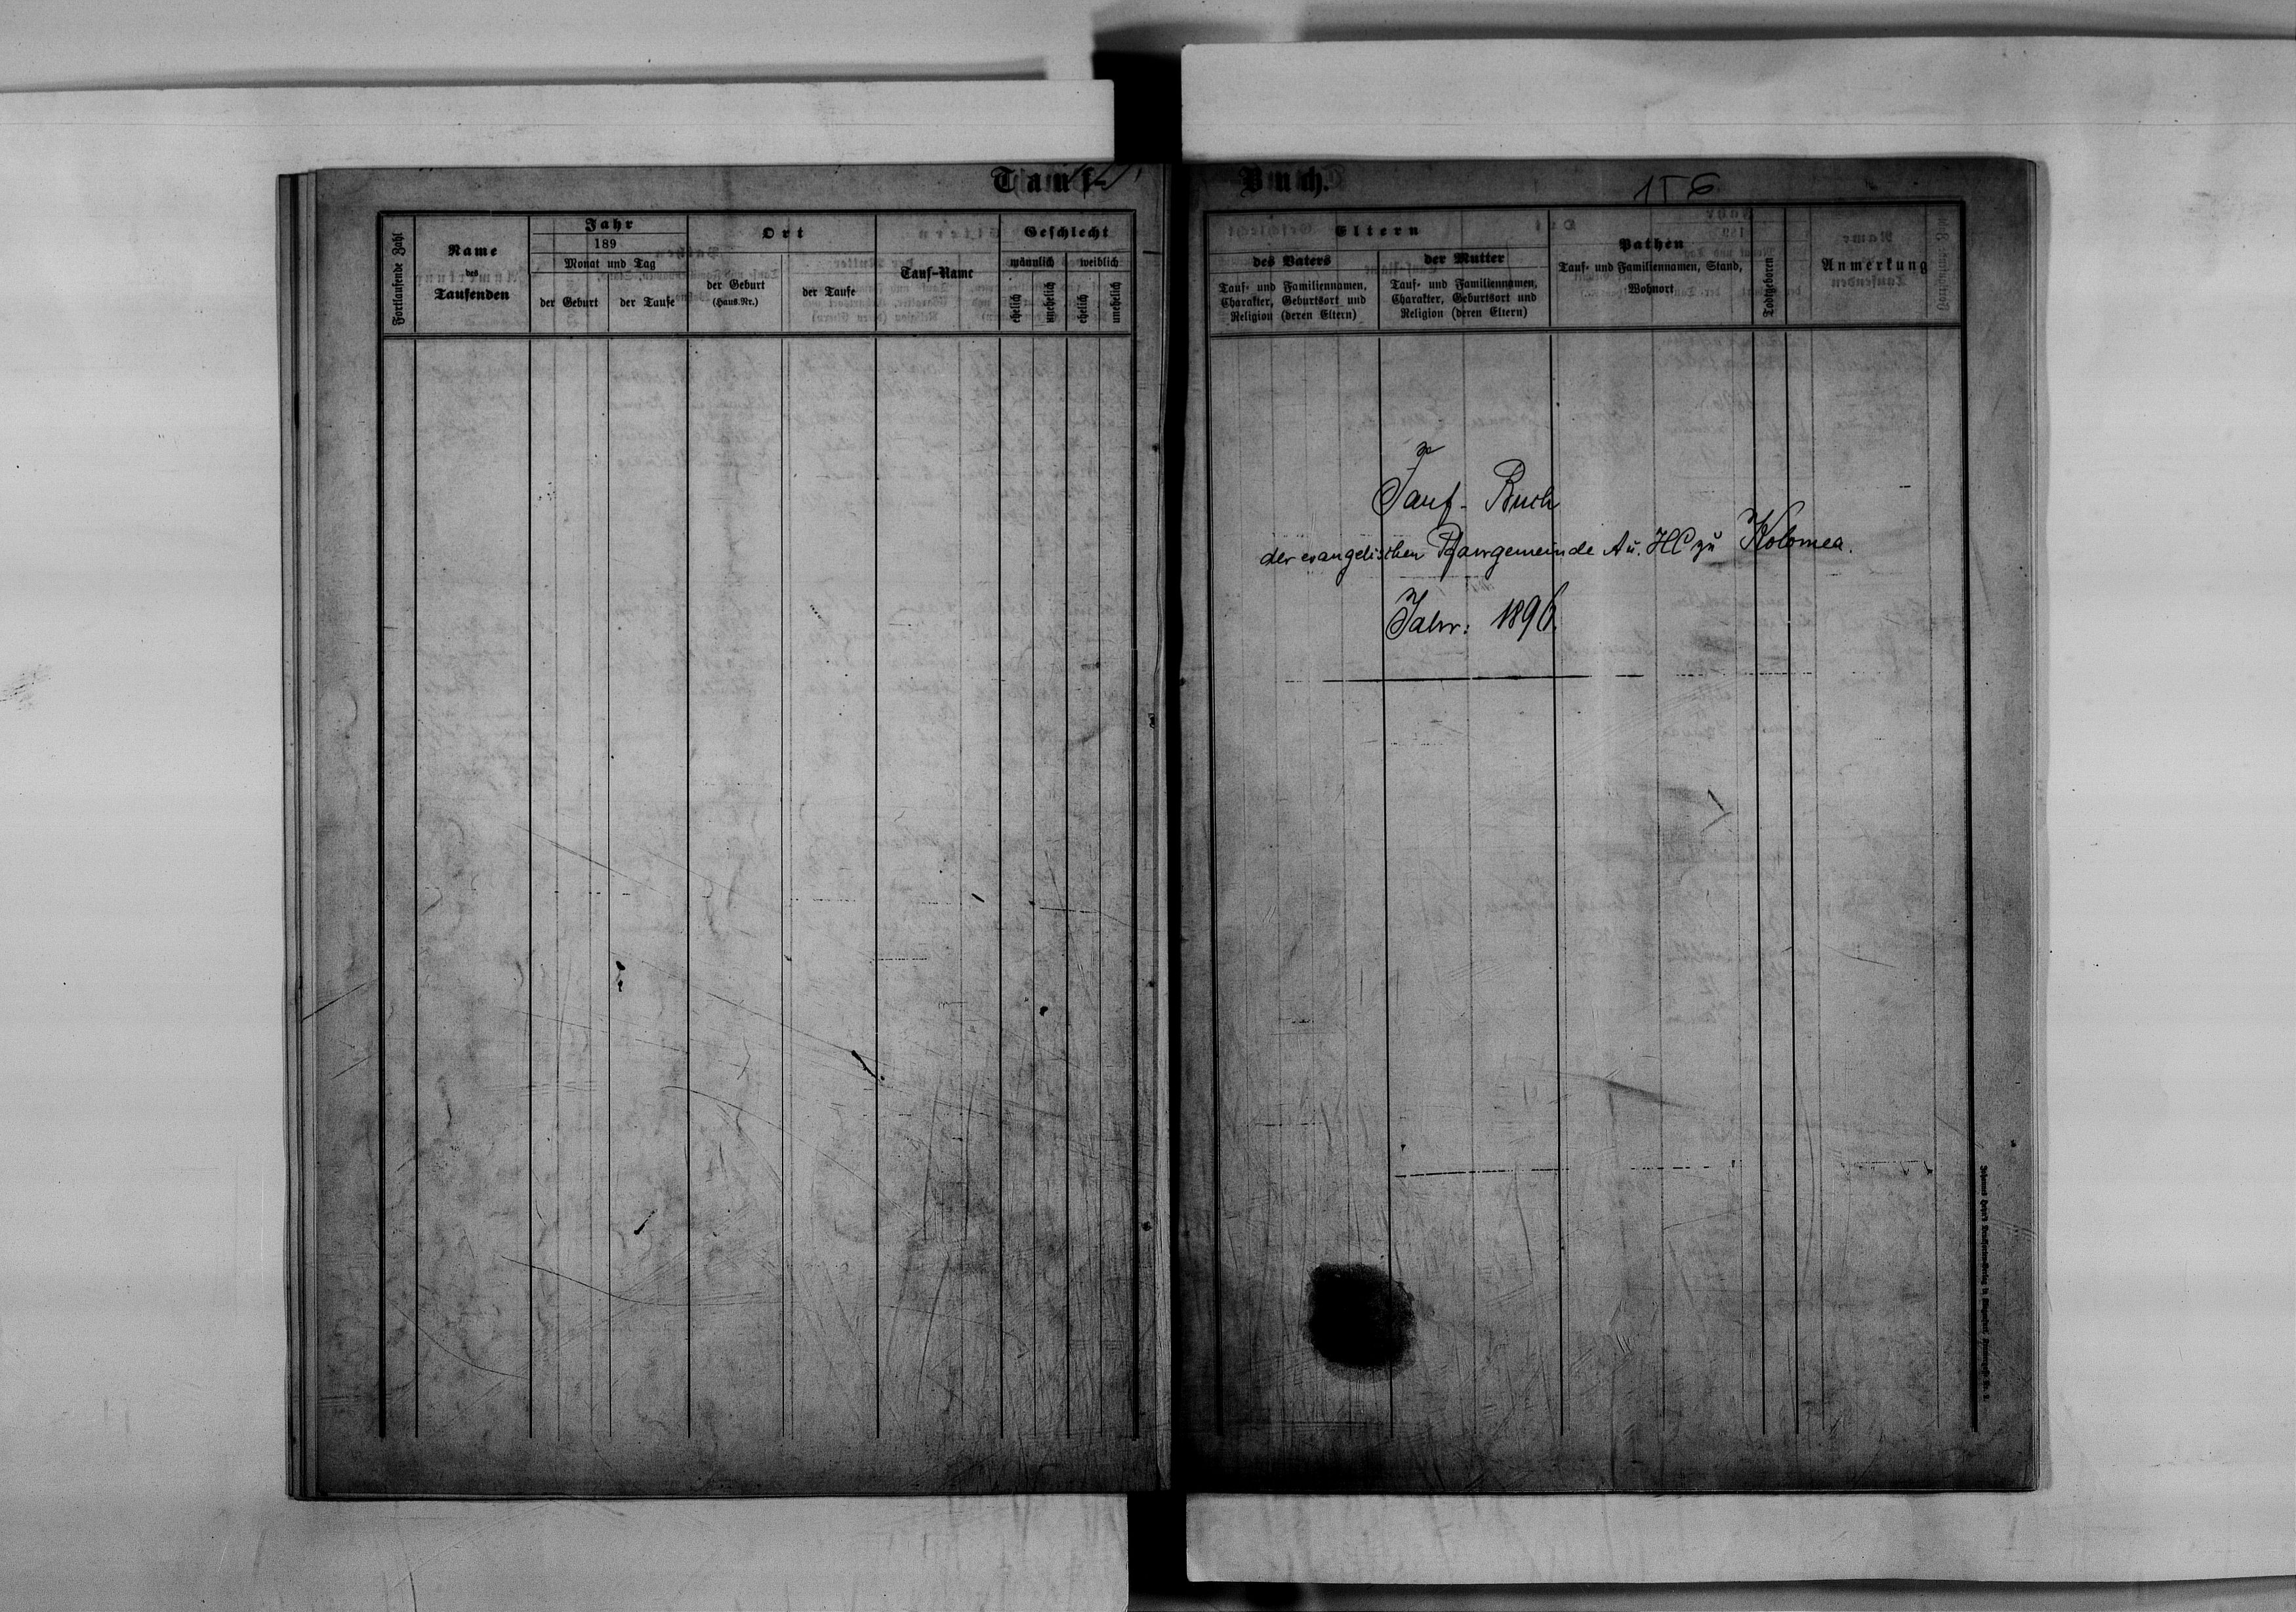 Tauf-
Fortlaufende Zahl
Name
des
Taufenden
Jahr
189
Monat und Tag
der Geburt
der Taufe
Ort
der Geburt
(Haus.Nr.)
der Taufe
Tauf-Name
Geschlecht
männlich
weiblich
ehelich
unehelich
ehelich
unehelich
Buch.
156
Eltern
des Vaters
Tauf- und Familiennamen,
Charakter, Geburtsort und
Religion (deren Eltern)
der Mutter
Tauf- und Familiennamen,
Charakter, Geburtsort und
Religion (deren Eltern)
Pathen
Tauf- und Familiennamen, Stand,
Wohnort
Todtgeboren
Anmerkung
Tauf-Buch
der evangelischen Pfarrgemeinde A u. HC zu Kolomea.
Jahr: 1896.